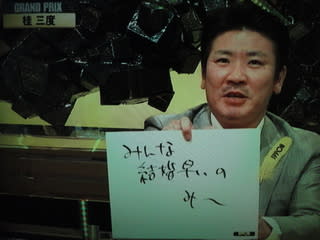 GRAND PRIX
桂 三度
みんな
結婚早いの
み〜